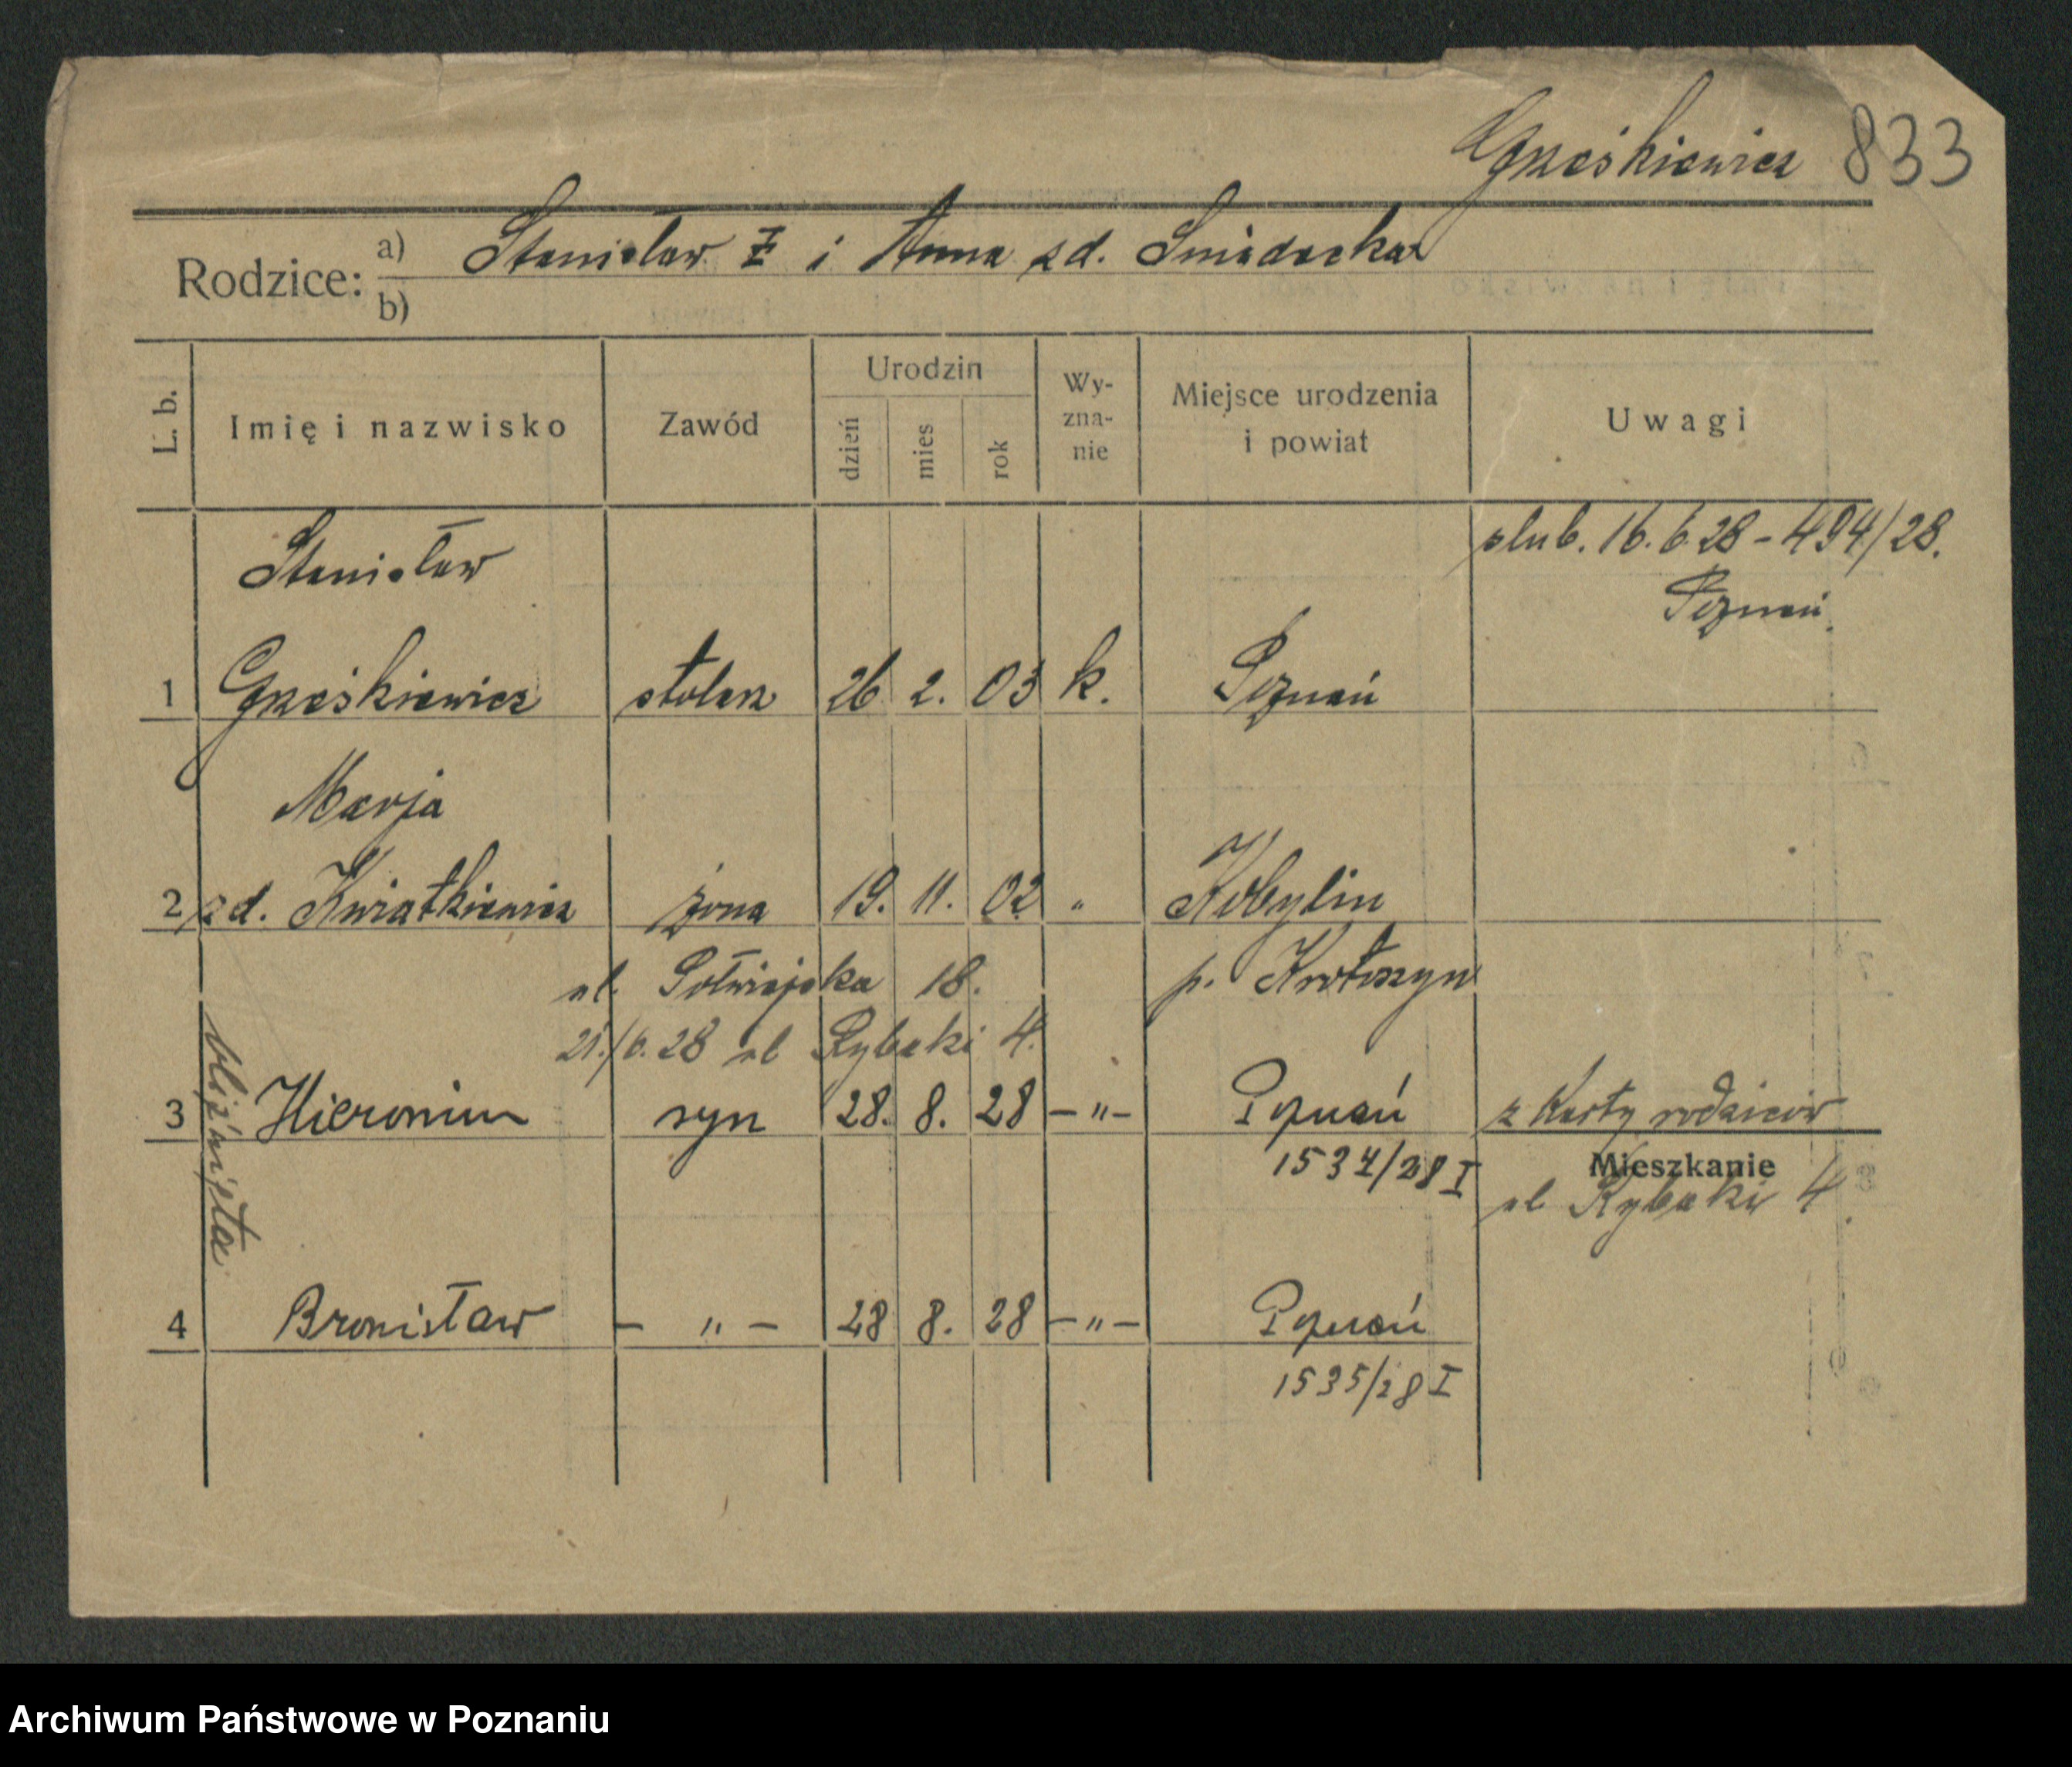 Grześkiewicz 833
Rodzice: a) Stanisław I i Anna zd. Śniadecka
b)
L. b. Imię i nazwisko Zawód Urodzin dzień mies rok Wy-zna-nie Miejsce urodzenia i powiat Uwagi
Stanisław ślub. 16.6.28 - 494/28.
Poznań
1 Grześkiewicz stolarz 26 2. 03 k. Poznań
Marja
2 zd. Kwiatkiewicz żona 19. 11. 02 " Kobylin
ul. Półwiejska 18. p. Krotoszyn
21./6. 28 ul Rybaki 4.
bliźnięta
3 Hieronim syn 28. 8. 28 – " – Poznań z Karty rodziców
1534/28 I Mieszkanie
ul Rybaki 4.
4 Bronisław – " – 28 8. 28 – " – Poznań
1535/28 I
Archiwum Państwowe w Poznaniu